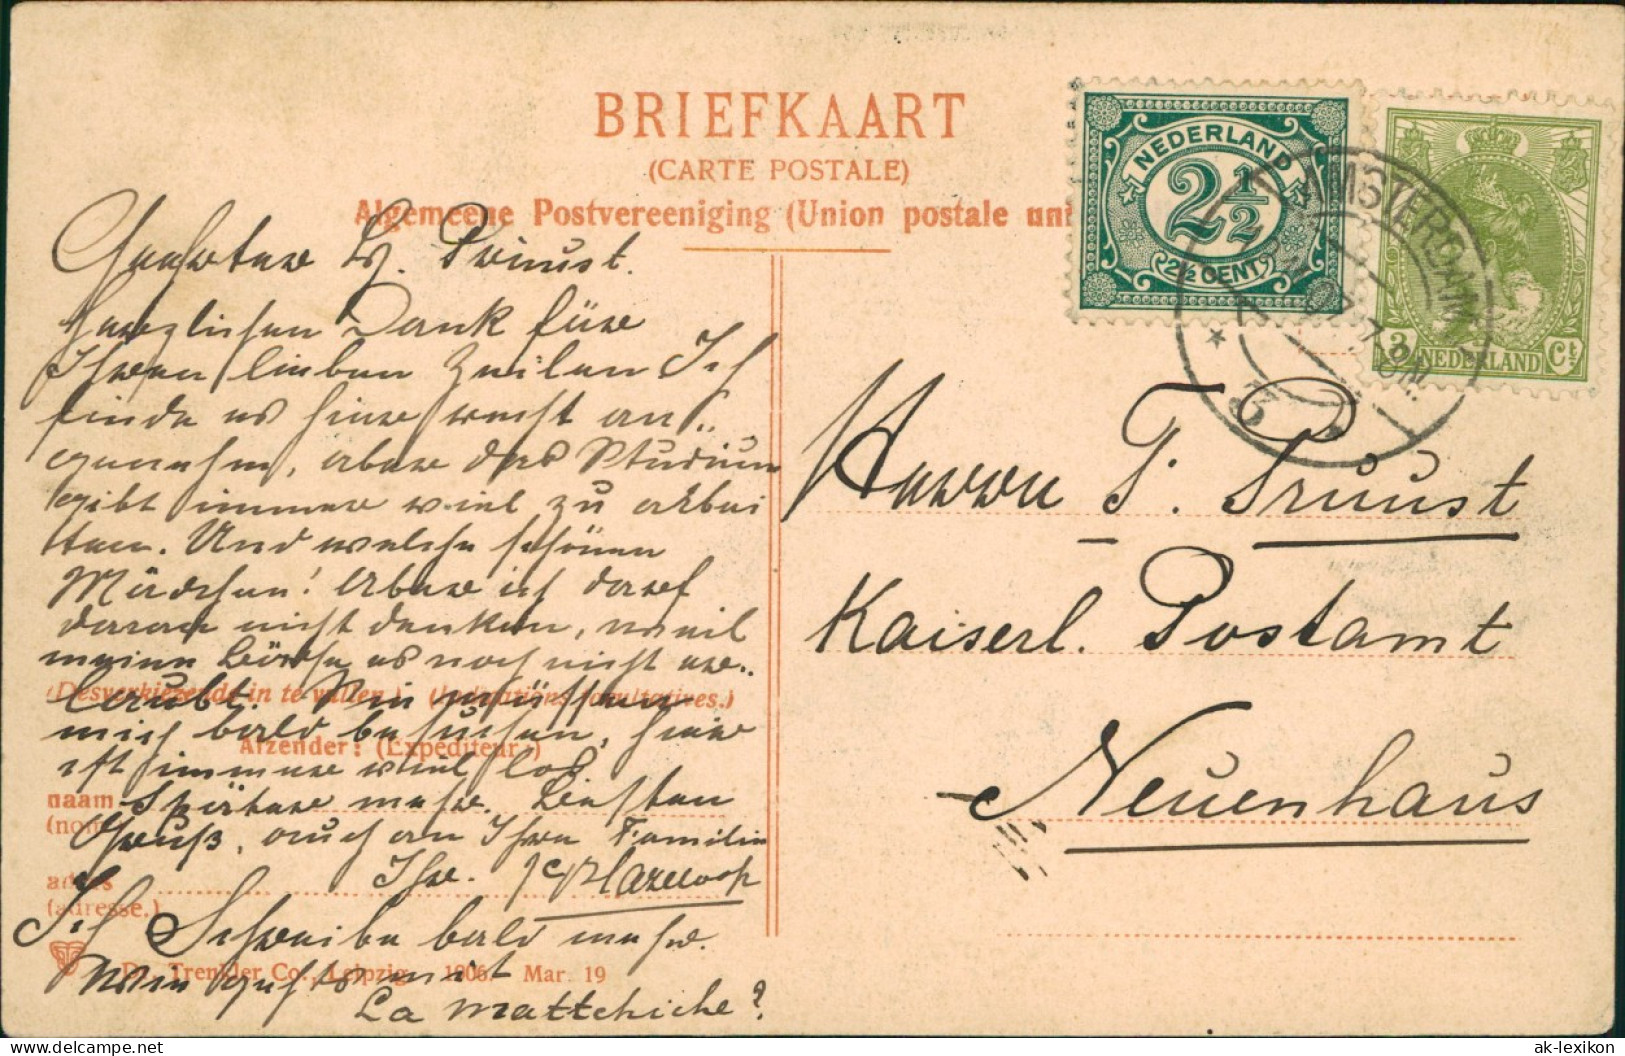 BRIEFKAART
(CARTE POSTALE)
Algemeene Postvereeniging (Union postale uni
NEDERLAND
2½
2½ CENT
AMSTERDAM
3 NEDERLAND Ct
Geehrter H. Prinust.
Herzlichen Dank für
Ihren lieben Zeilen Ich
finde es hier recht an..
genehm, aber das Studium
gibt immer viel zu arbei
ten. Und welche schönen
Mädchen! Aber ich darf
daran nicht denken, weil
meine Börse es noch nicht er..
laubt. Sie müssen
mich bald besuchen, hier
ist immer viel los
Später mehr. Besten
Gruß, auch an Ihre Familie
Ihr.
Ich Schreibe bald mehr.
Wie geht's mit
La Mattchiche?
(Desverkiezende in te vullen.) (Indications facultatives.)
Afzender: (Expéditeur:)
naam
(nom
adres
(adresse.)
Dr. Trenkler Co., Leipzig. 1906. Mar. 19
Herrn T. Prüust
Kaiserl. Postamt
Neuenhaus
www.delcampe.net
ak-lexikon